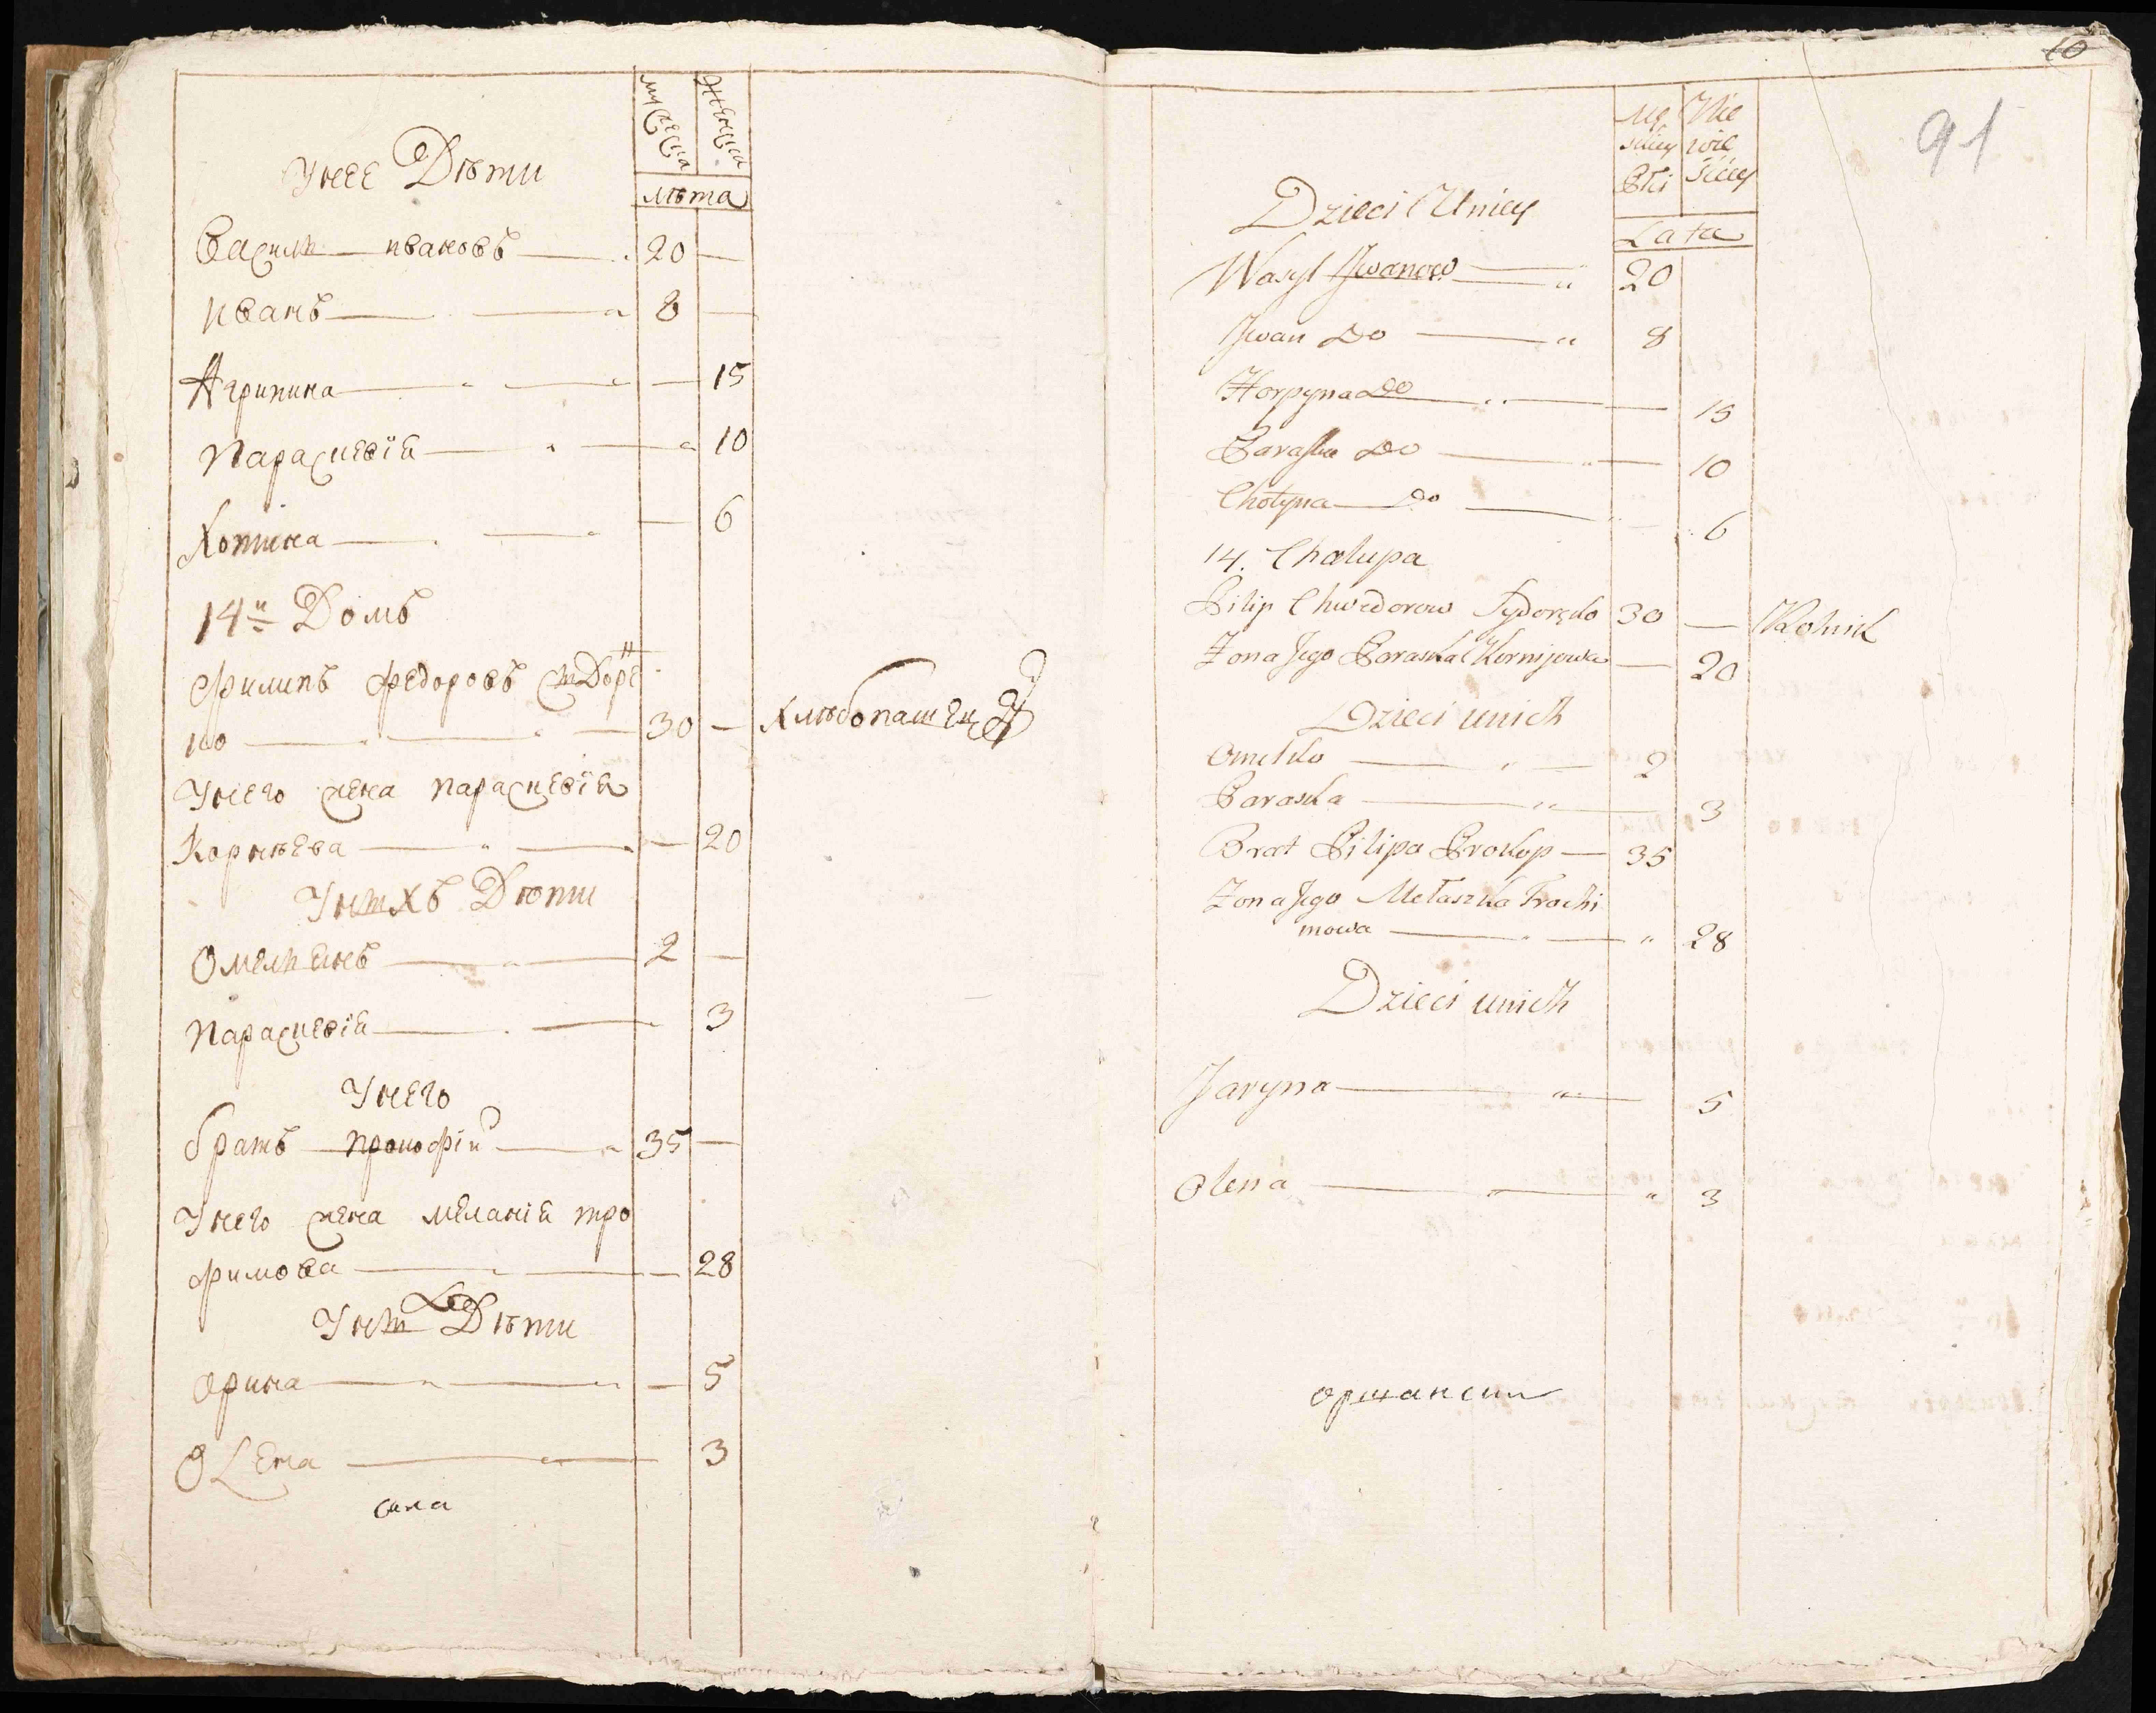 мужеска
женска
лѣта
У нее Дѣти
Василь ивановъ 20 —
иванъ 8 —
Агрипина — 15
Параскевія 10
Хотина — 6
14й Домъ
Филипъ федоровъ Сидоре
нко 30 — хлѣбопашец
У него жена параскевія
Корнѣева — 20
У нихъ Дѣти
Омельянъ 2 —
Параскевія 3
У него
братъ прокофій 35 —
У него жена меланія тро
фимова — 28
У них Дѣти
Орина — 5
Олена 3
10
91
Mę Nie
skiey wie
Płci sciey
Lata
Dzieci Uniey
Wasyl Iwanow 20
Iwan Do 8
Horpyna Do 15
Paraska Do 10
Chotyna Do 6
14. Chalupa
Pilip Chwedorow Sydoręko 30 — Rolnik
Zona Jego Paraska Kornijowa — 20
Dzieci unich
Omelko 2
Paraska 3
Brat Pilipa Prokop — 35
Zona Jego Melaszka Trochi
mowa 28
Dzieci unich
Jaryna 5
Olena 3